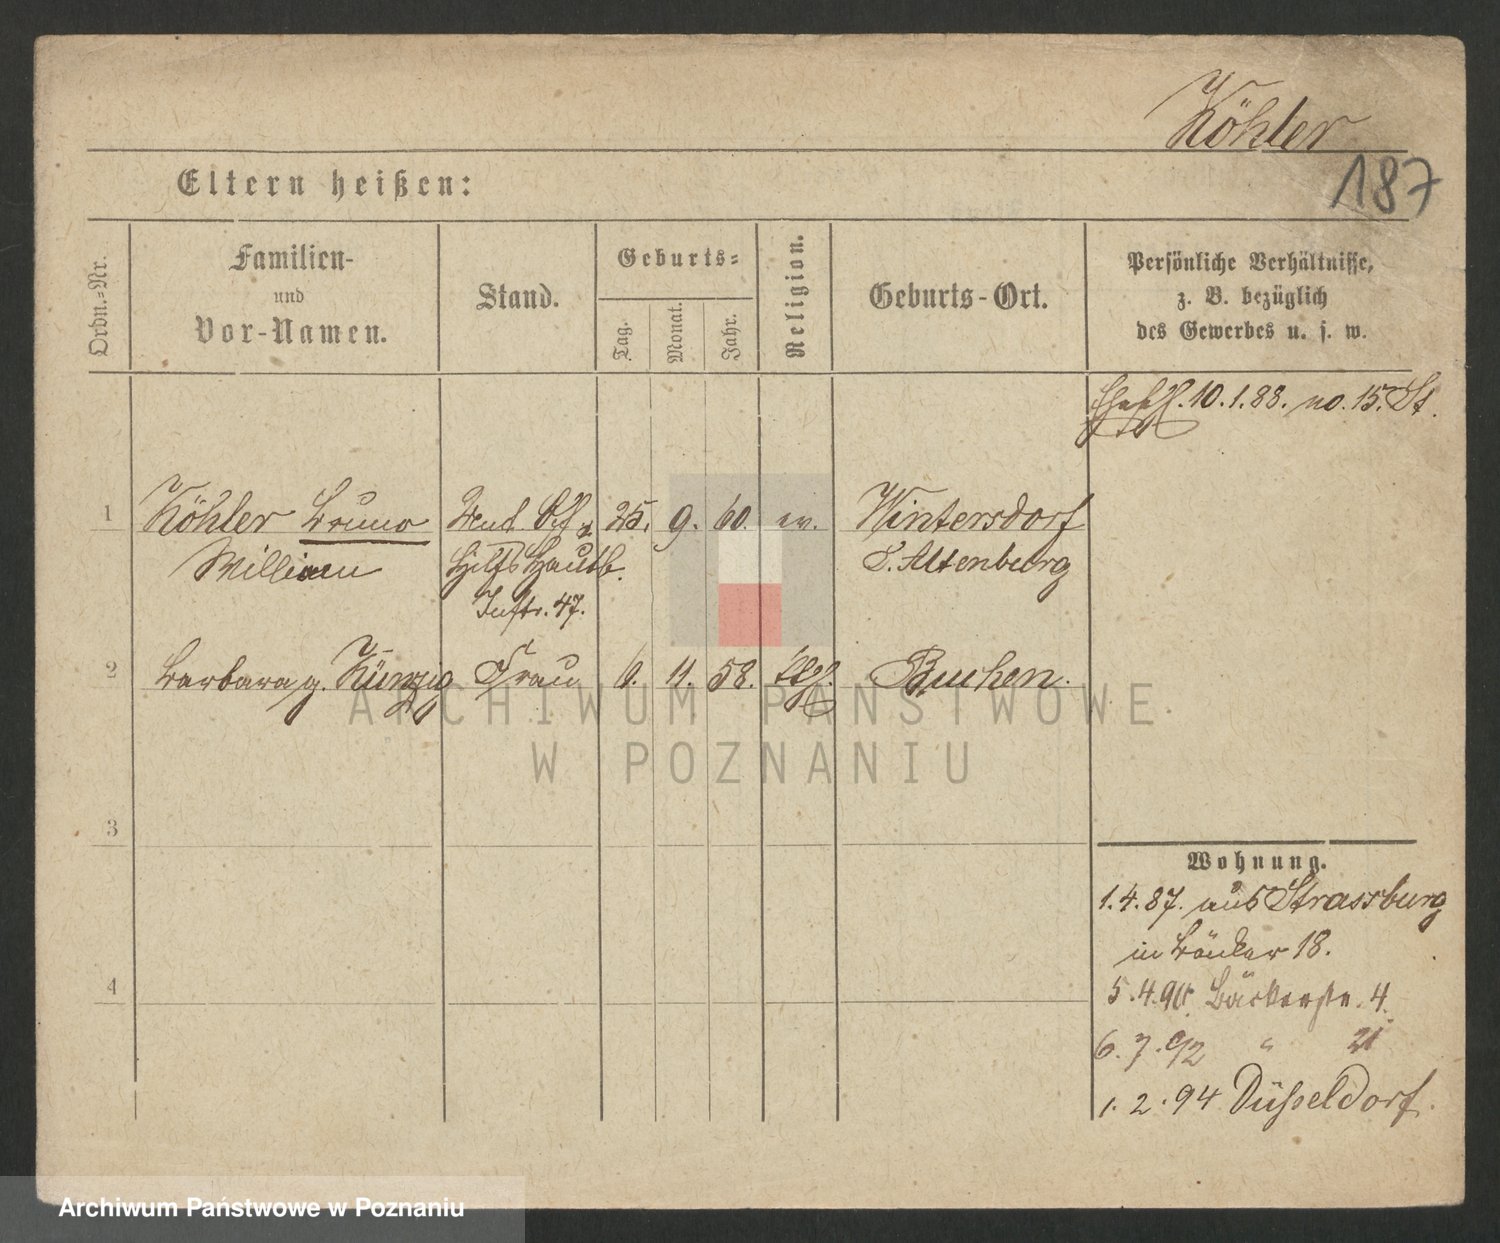 Köhler
187
Eltern heißen:
Ordn.-Nr.
Familien-
und
Vor-Namen.
Stand.
Geburts-
Tag.
Monat.
Jahr.
Religion.
Geburts-Ort.
Persönliche Verhältnisse,
z. B. bezüglich
des Gewerbes u. s. w.
10.1.88. no. 15. St.
1 Köhler Bruno 25. 9. 60. ev. Wintersdorf
William S. Altenburg
Instr. 47.
2 Barbara g. Künzig Frau 6. 11. 58. kth. Buchen.
ARCHIWUM PAŃSTWOWE
W POZNANIU
3
Wohnung.
1.4.87. aus Strassburg
in Bäcker 18.
4
5.4.90. Bäckerstr. 4.
6.7.92 " 21
1.2.94 Düsseldorf.
Archiwum Państwowe w Poznaniu